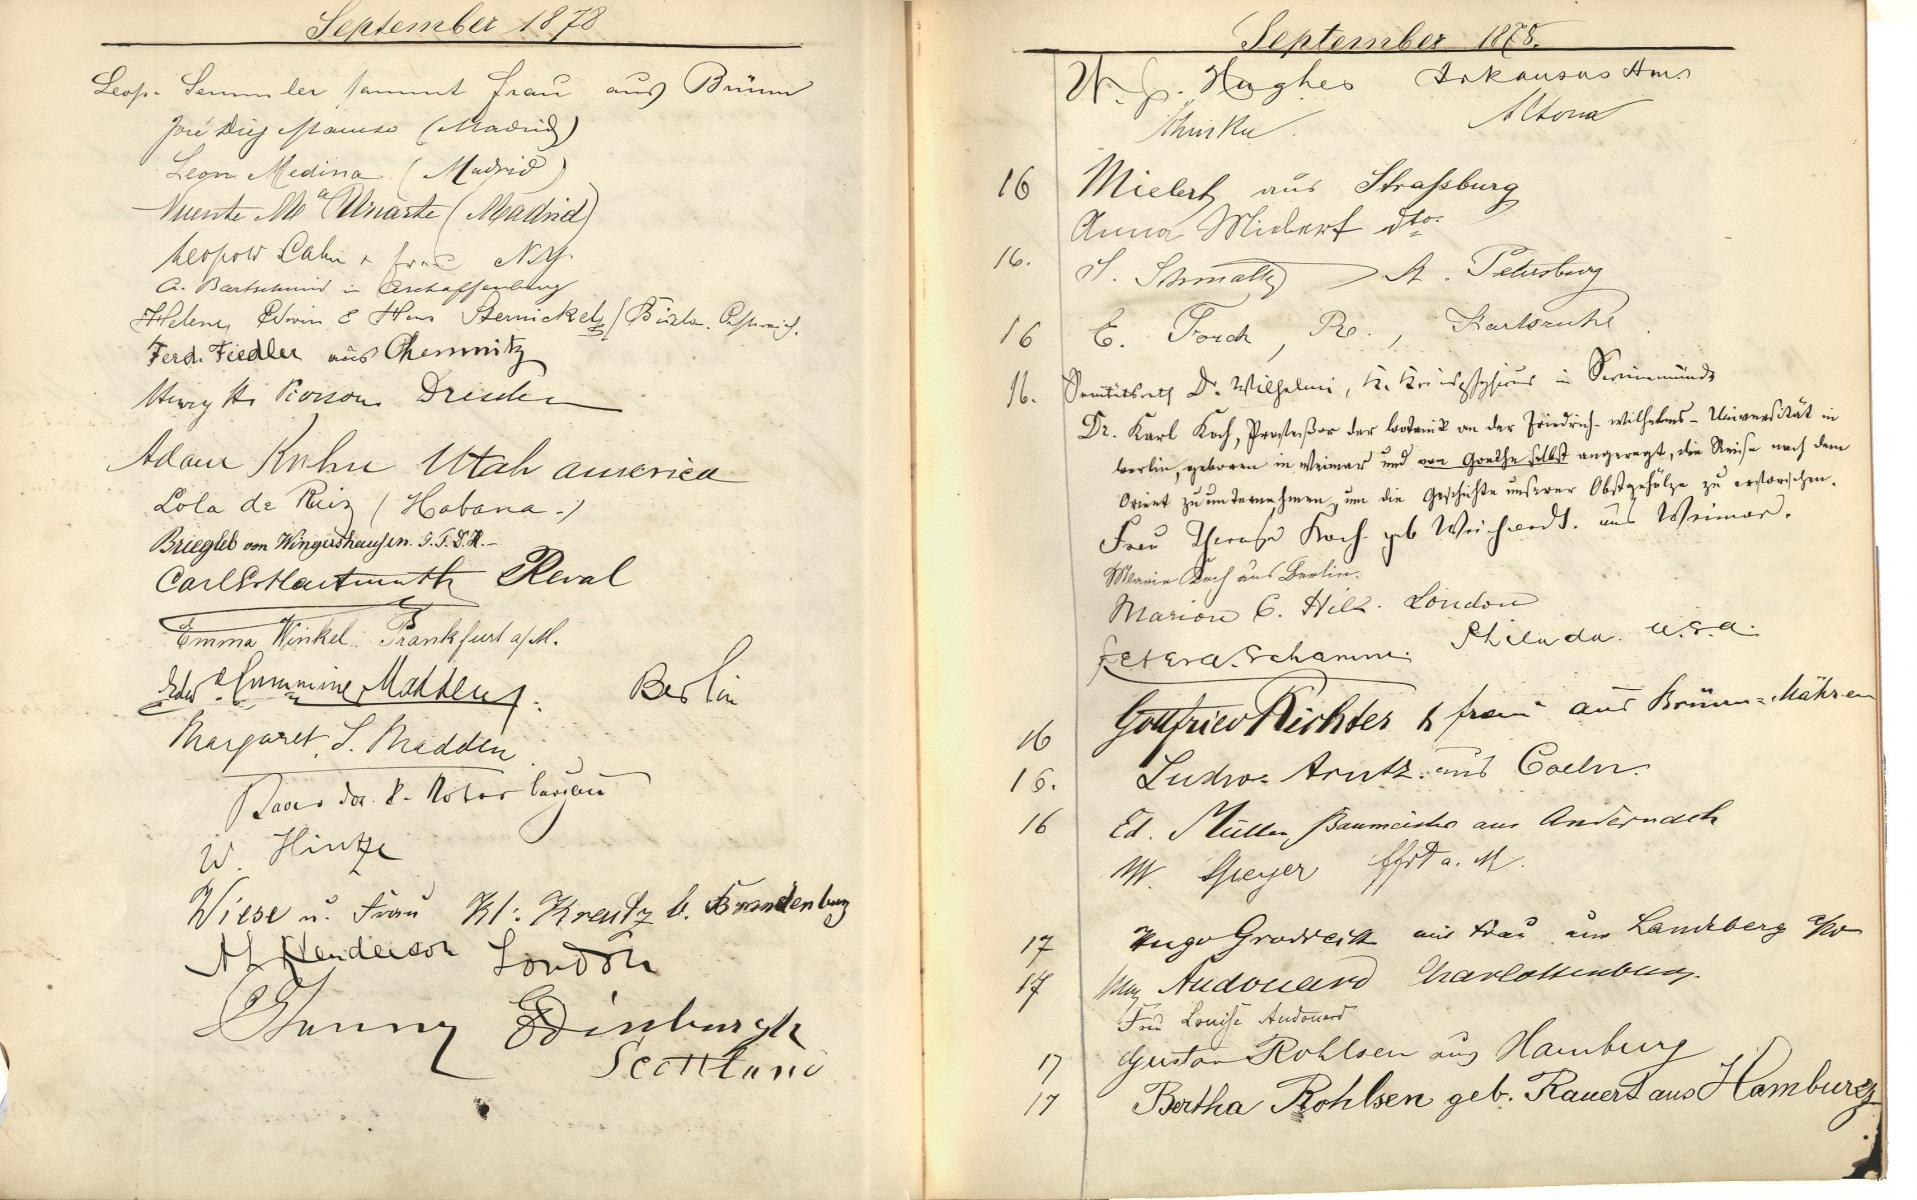 September 1878
Leop. Semmler sammt Frau aus Brünn
(Madrid)
Leon Medina (Madrid)
Vicente Mª Uriarte (Madrid)
Leopold Cahn & frau N.Y.
A. Bartschmid in Aschaffenburg
Helene, Edwin & Hans Sternickel
Ferd. Fiedler aus Chemnitz
Henry Pierson Dresden
Adam Kuhn Utah america
Lola de Ruiz (Habana.)
Briegleb von Wingershausen.
Carl Hartmuth Reval
Emma Winkel. Frankfurt a/M.
Cumming Madden. Berlin
Margaret S. Madden
W. Hintze
Wiese u. Frau Kl: Kreutz b. Brandenburg
Henderson London
Edinburgh
Scotland
September 1878.
W. J. Hughes Arkansas
Altona
16 Mielert aus Straßburg
Anna Mielert dto.
16. S. Schmaltz St. Petersburg
16 E. Forch, Karlsruhe
16. Sanitätsrath Dr. Wilhelmi, K. Kreisphysicus in Swinemünde
Dr. Karl Koch, Professor der Botanik an der Friedrich-Wilhelms-Universität in
Berlin, geboren in Weimar und von Goethe selbst angeregt, die Reise nach dem
Orient zu unternehmen, um die Geschichte unserer Obstgehölze zu erforschen.
Frau Therese Koch geb Weichardt. aus Weimar.
Marie Koch aus Berlin.
Marion C. Hill. London
Peter A. Schamm. Philada. U.S.A.
16 Gottfried Richter & frau aus Brünn=Mähren
16. Ludw. Arntz. aus Coeln.
16 Ed. Müller Baumeister aus Andernach
W. Speyer ffrt a. M.
17 Hugo mit Frau aus Landsberg
17 Audouard Charlottenburg.
Frau Louise Audouard
17 Gustav Rohlsen aus Hamburg
17 Bertha Rohlsen geb. Rauert aus Hamburg